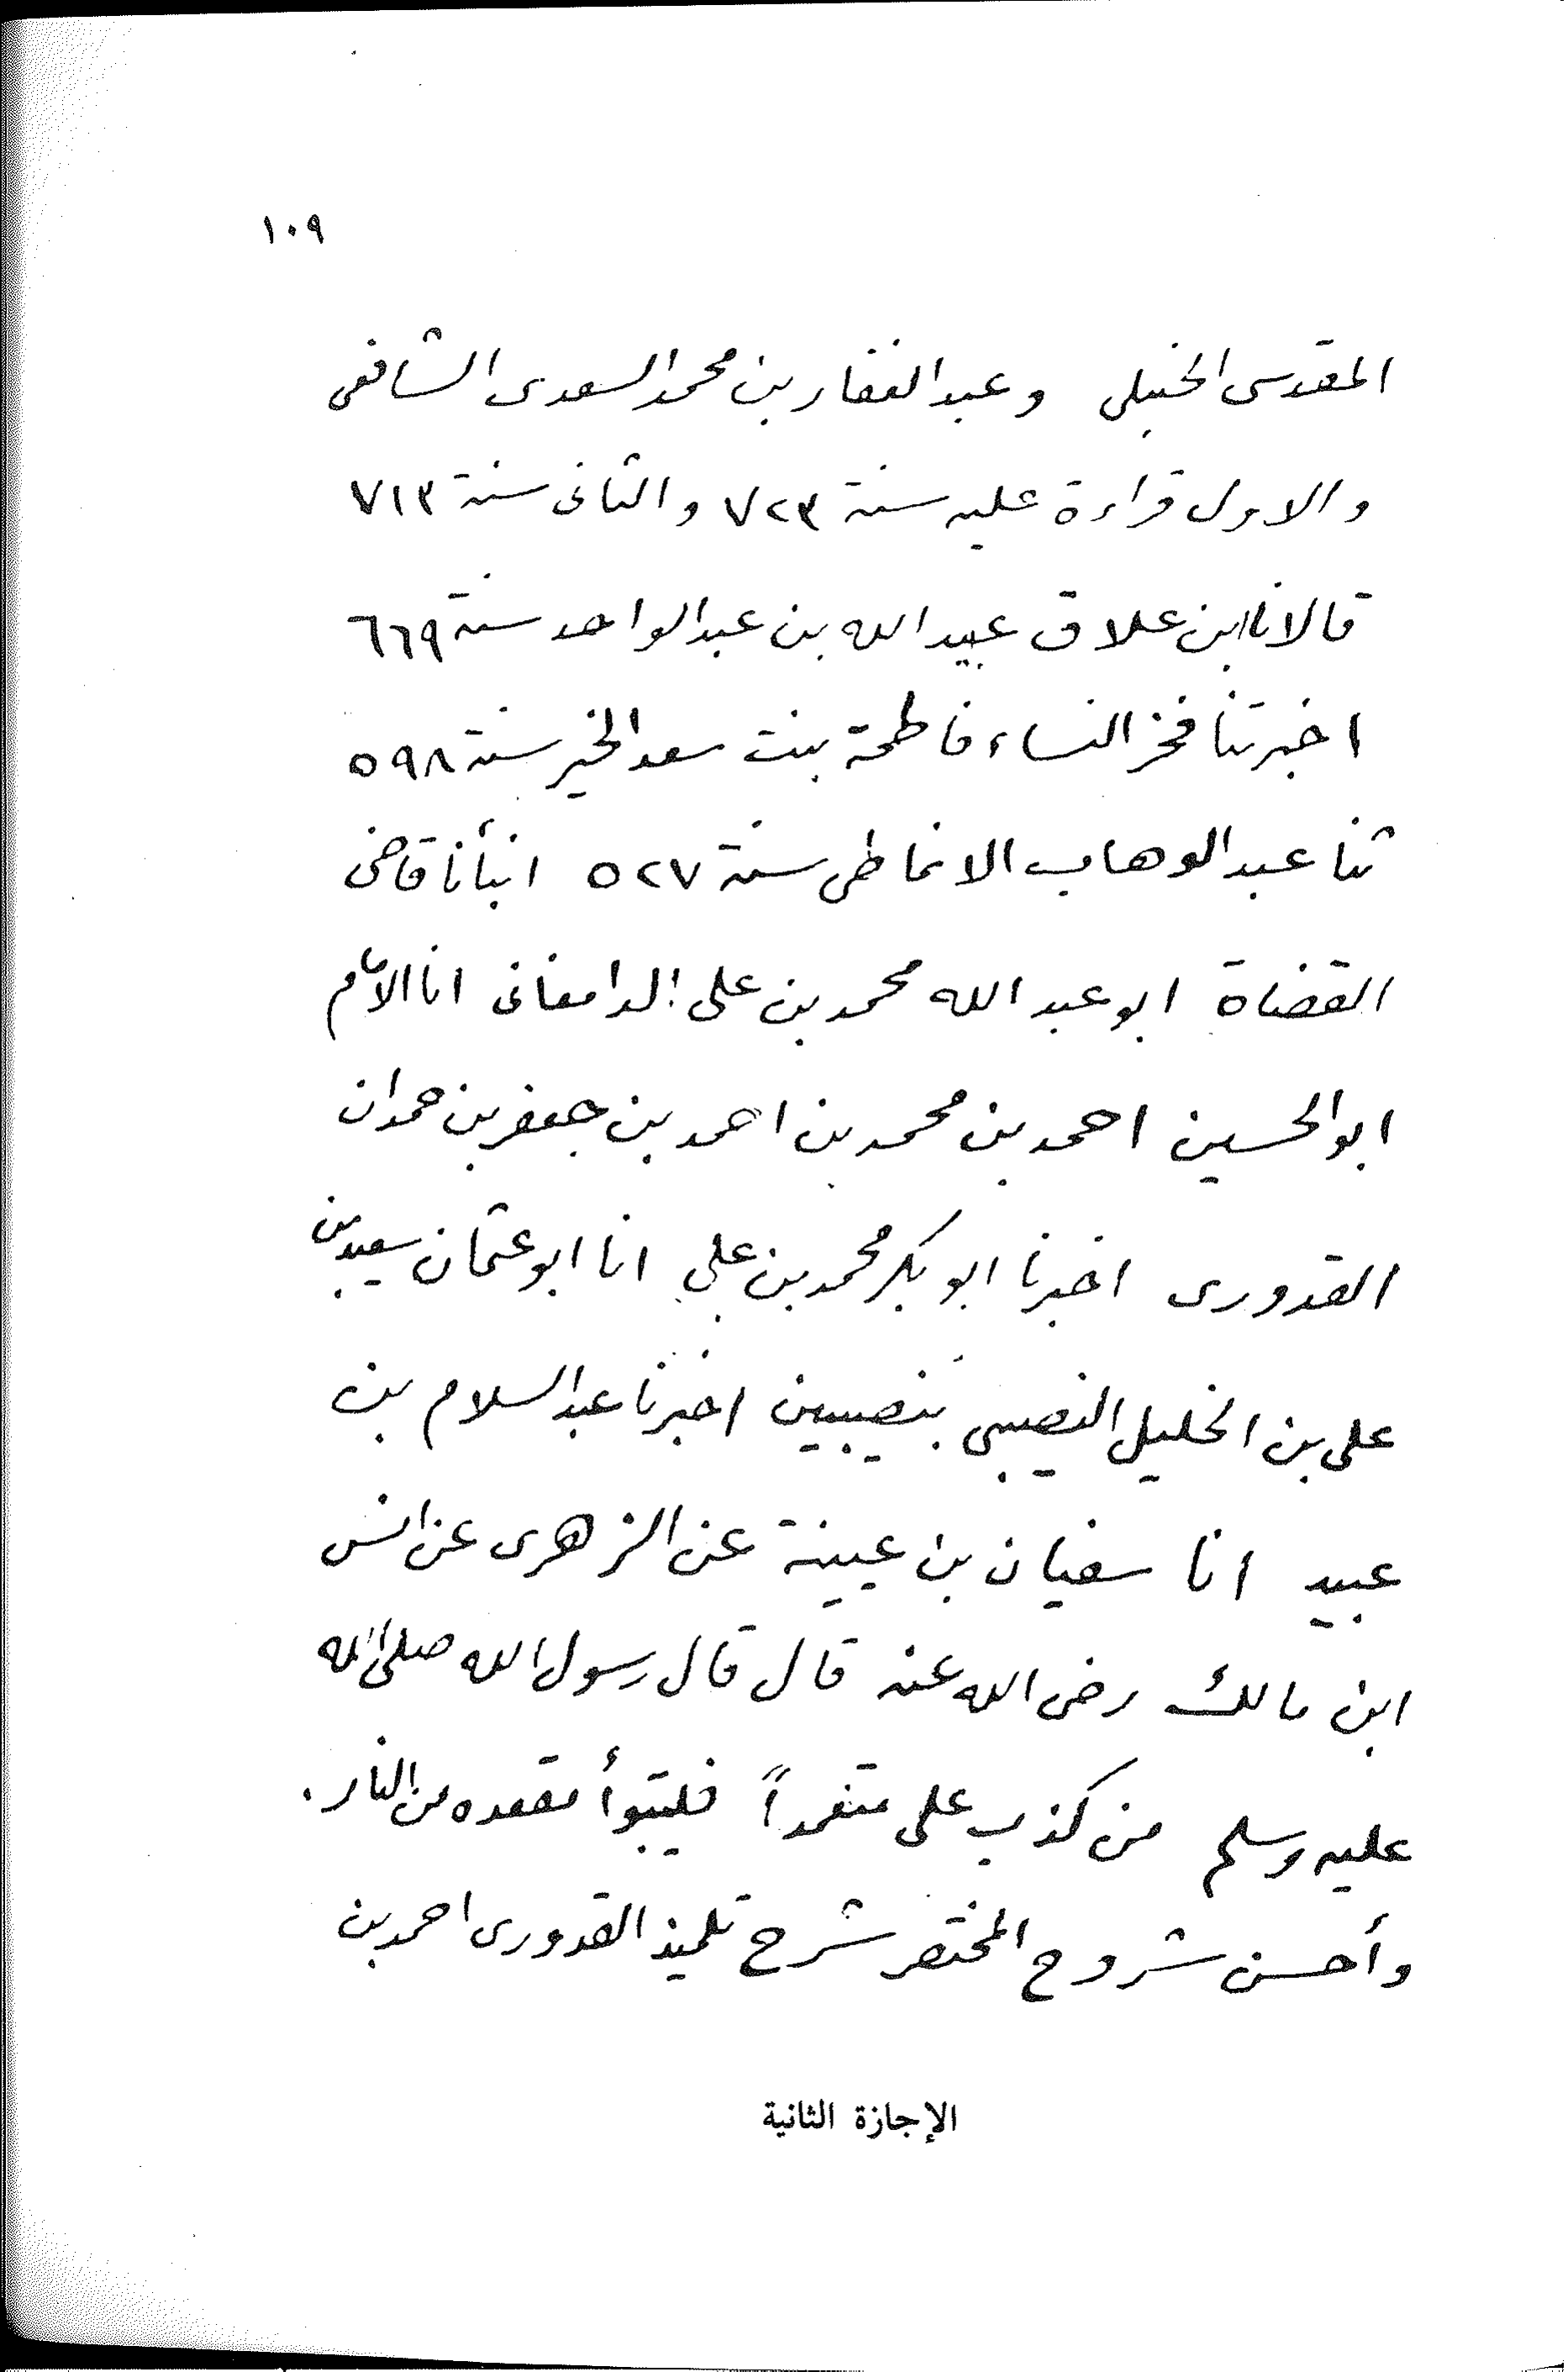 ١٠٩
المقدسى الحنبلى وعبد الغفار بن محمد السعدى الشافعى
والاول قراءة عليه سنة ٧٢٣ والثانى سنة ٧١٣
قالا نا ابن علاق عبيد الله بن عبد الواحد سنة ٦٦٩
اخبرتنا فخر النساء فاطمة بنت سعد الخير سنة ٥٩٨
ثنا عبد الوهاب الانماطى سنة ٥٢٧ انبأنا قاضى
القضاة ابو عبد الله محمد بن على الدامغانى انا الامام
ابو الحسين احمد بن محمد بن احمد بن جعفر بن حمدان
القدورى اخبرنا ابو بكر محمد بن على انا ابو عثمان سعيد بن
على بن الخليل النصيبى بنصيبين اخبرنا عبد السلام بن
عبيد انا سفيان بن عيينة عن الزهرى عن انس
ابن مالك رضى الله عنه قال قال رسول الله صلى الله
عليه وسلم من كذب على متعمداً فليتبوأ مقعده من النار.
وأحسن شروح المختصر شرح تلميذ القدورى احمد بن
الإجازة الثانية